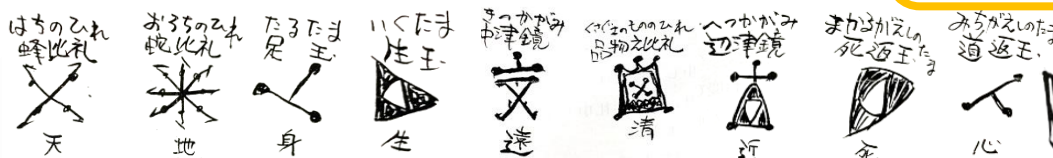 はちのひれ
蜂比礼
天
おろちのひれ
蛇比礼
地
たるたま
足玉
身
いくたま
生玉
生
きつかがみ
中津鏡
遠
くさぐさのもののひれ
品物之比礼
清
へつかがみ
辺津鏡
近
まかるがえしのたま
死返玉
死
みちがえしのたま
道返玉
心